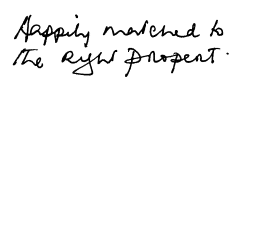 Happily matched to
the right propert.